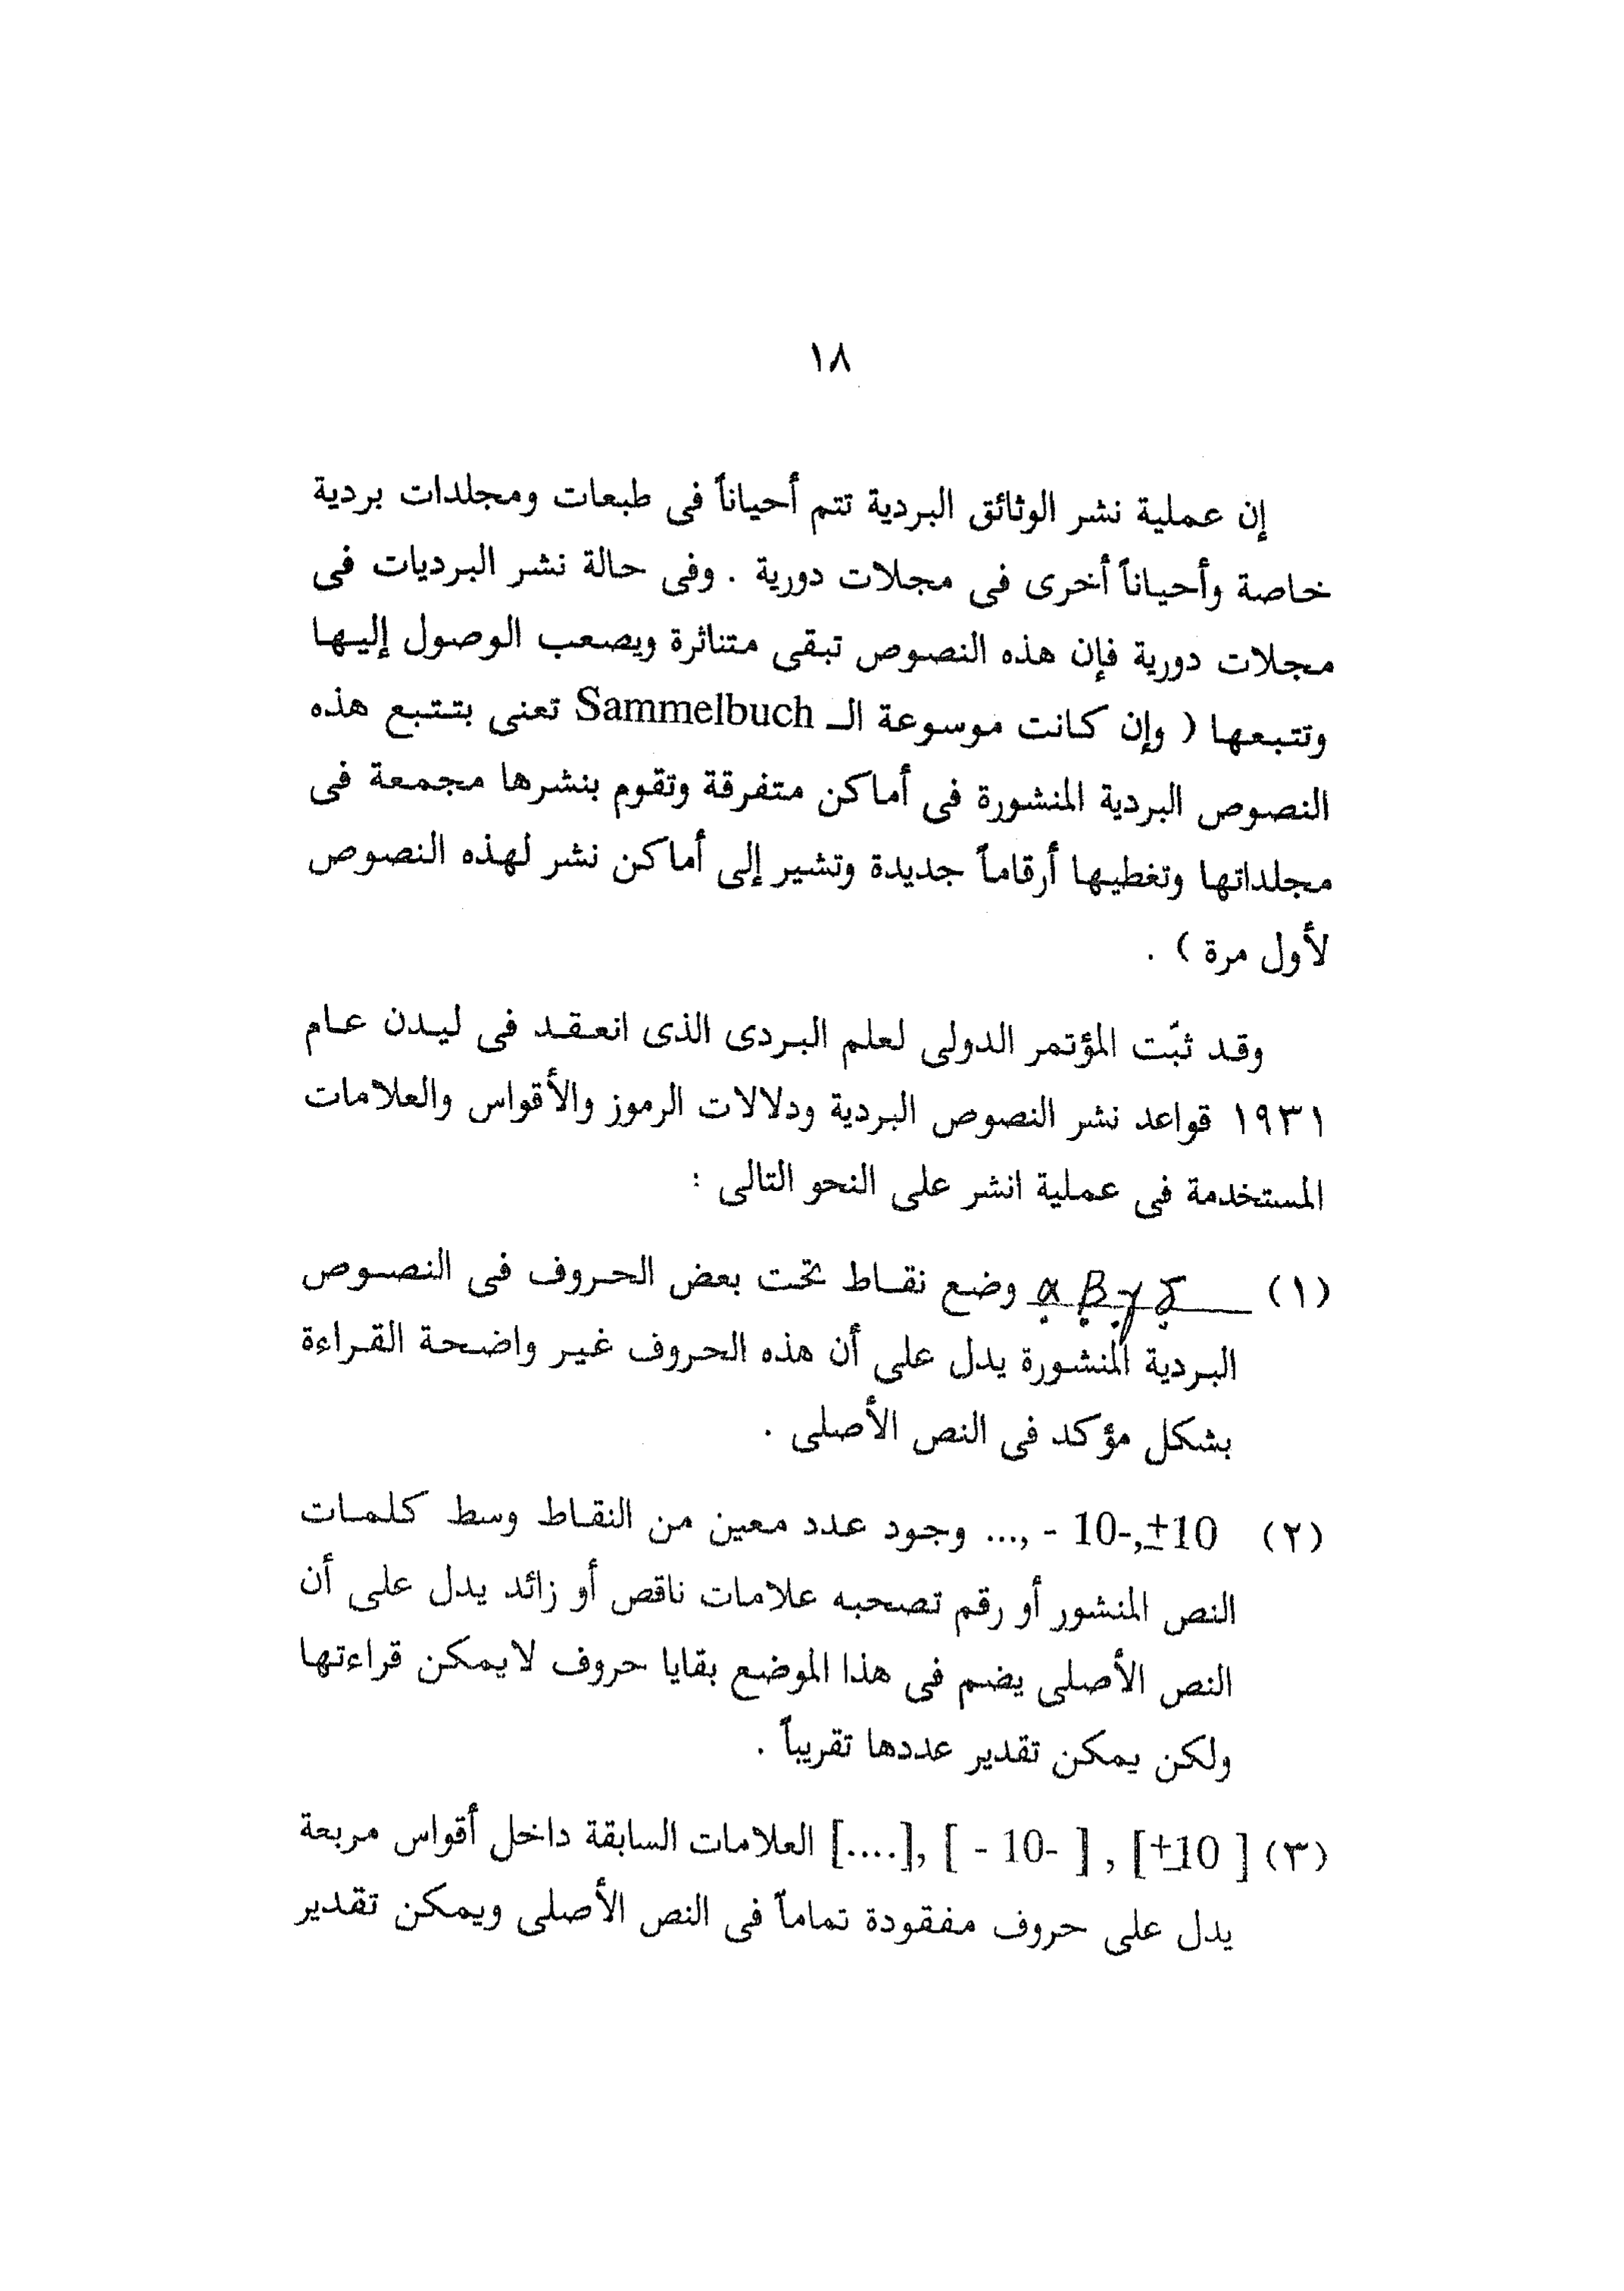 ١٨
إن عملية نشر الوثائق البردية تتم أحياناً فى طبعات ومجلدات بردية
خاصة وأحياناً أخرى فى مجلات دورية . وفى حالة نشر البرديات فى
مجلات دورية فإن هذه النصوص تبقى متناثرة ويصعب الوصول إليها
وتتبعها ( وإن كانت موسوعة الـ Sammelbuch تعنى بتتبع هذه
النصوص البردية المنشورة فى أماكن متفرقة وتقوم بنشرها مجمعة فى
مجلداتها وتغطيها أرقاماً جديدة وتشير إلى أماكن نشر لهذه النصوص
لأول مرة ) .
وقد ثبّت المؤتمر الدولى لعلم البردى الذى انعقد فى ليدن عام
١٩٣١ قواعد نشر النصوص البردية ودلالات الرموز والأقواس والعلامات
المستخدمة فى عملية انشر على النحو التالى :
(١) α̣ β̣ γ̣ δ̣ وضع نقاط تحت بعض الحروف فى النصوص
البردية المنشورة يدل على أن هذه الحروف غير واضحة القراءة
بشكل مؤكد فى النص الأصلى .
(٢) ..., - 10-,±10 وجود عدد معين من النقاط وسط كلمات
النص المنشور أو رقم تصحبه علامات ناقص أو زائد يدل على أن
النص الأصلى يضم فى هذا الموضع بقايا حروف لايمكن قراءتها
ولكن يمكن تقدير عددها تقريباً .
(٣) [....], [ - 10- ] , [±10 ] العلامات السابقة داخل أقواس مربعة
يدل على حروف مفقودة تماماً فى النص الأصلى ويمكن تقدير